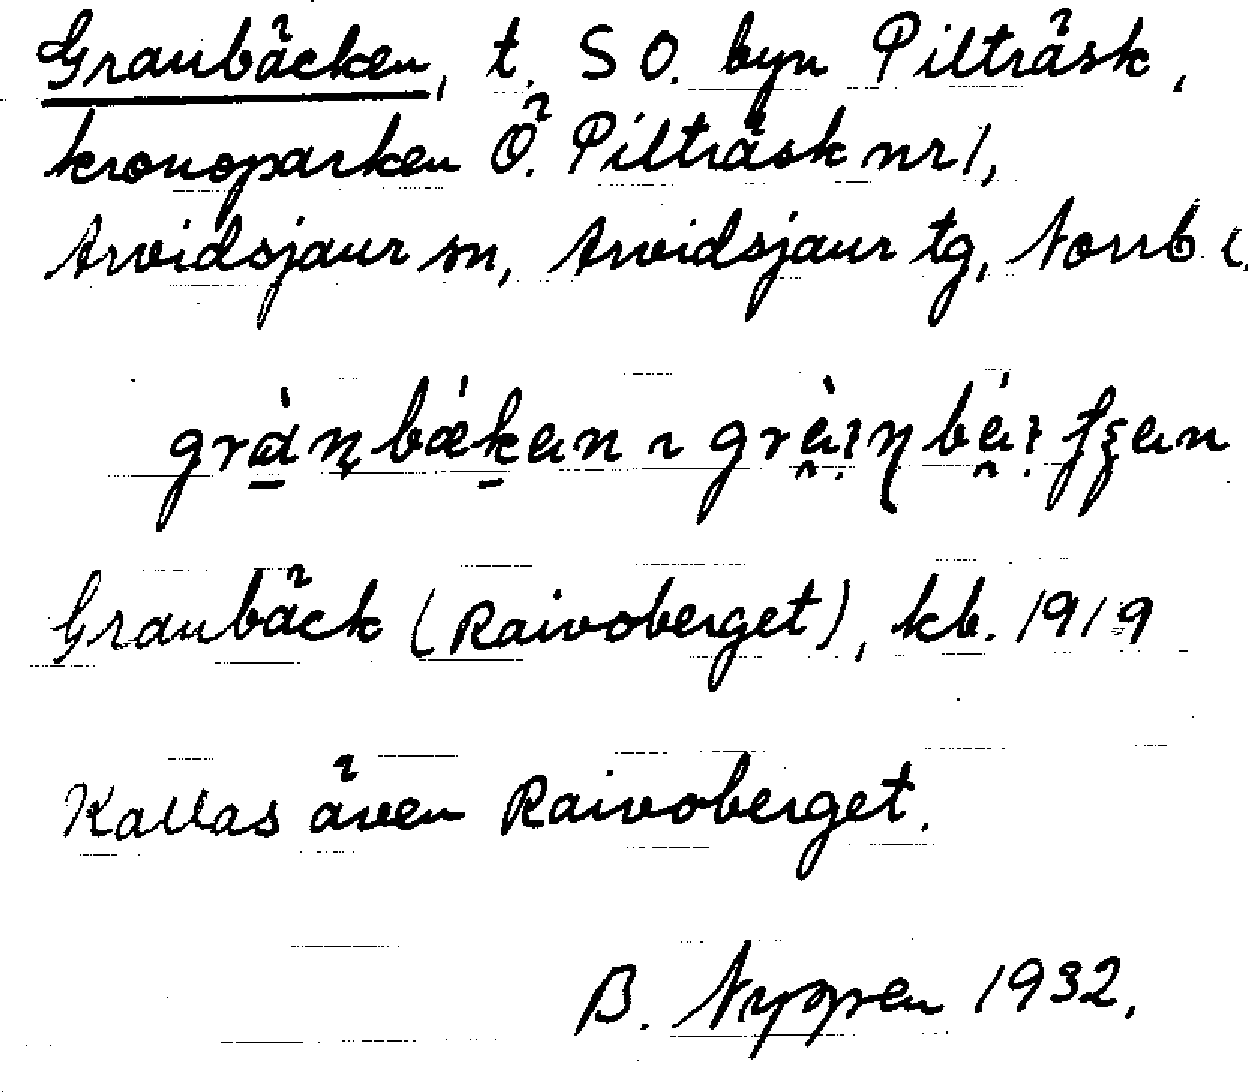 Granbäcken, t. S O. byn Pilträsk,
kronoparken Ö. Pilträsk nr 1,
Arvidsjaur sn, Arvidsjaur tg, Norrb l.
Granbäck (Raivoberget), kb. 1919
Kallas även Raivoberget.
B. Nygren 1932.